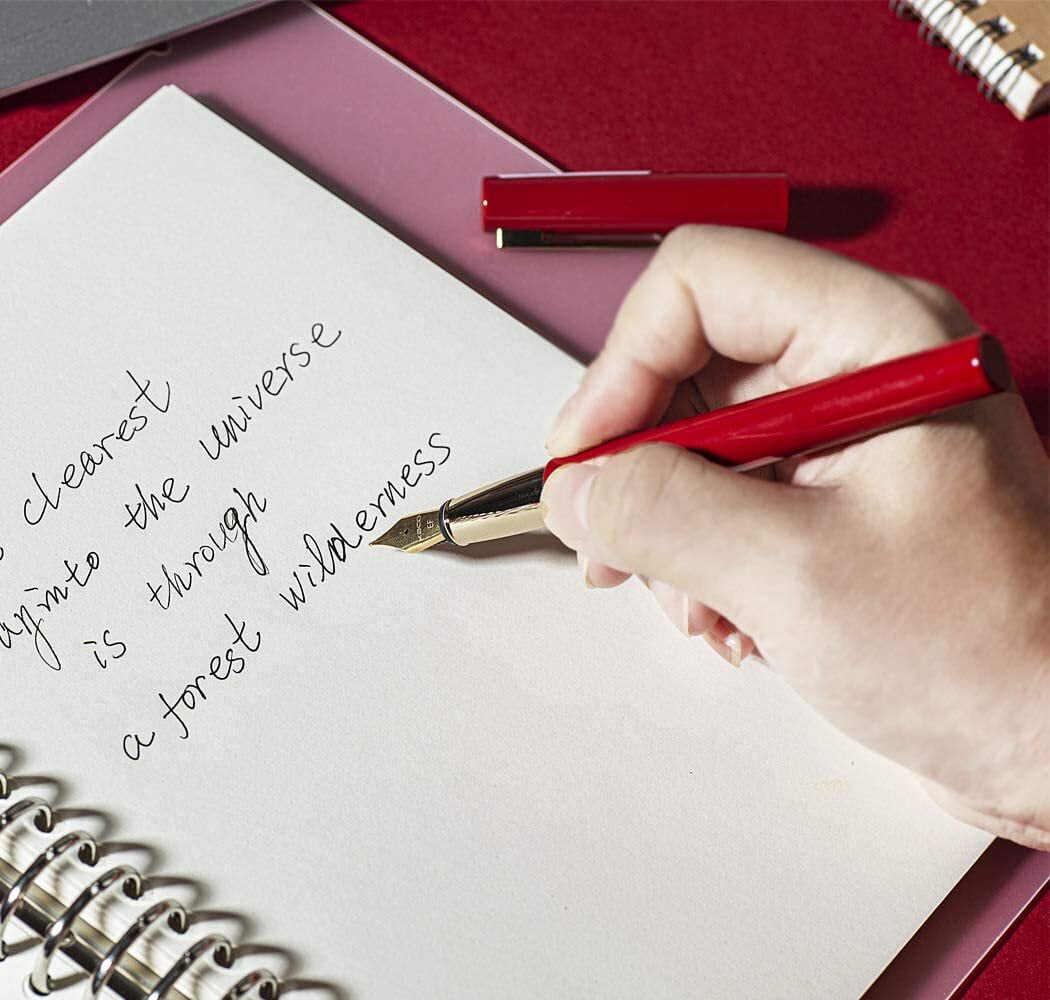 clearest
the universe
is through
a forest wilderness
EF